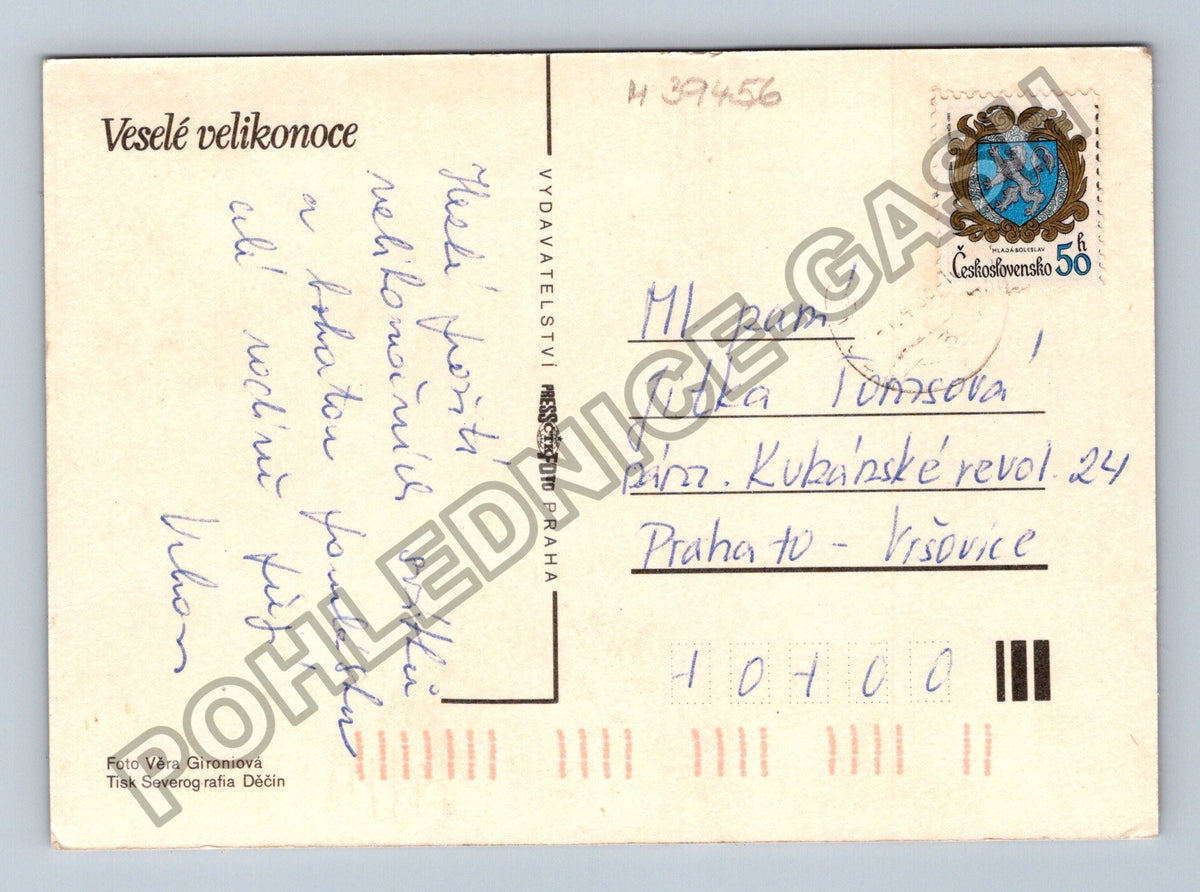 M 39456
Veselé velikonoce
Hezké prožití
velikonočních svátků
a bohatou pomlázku
celé rodině přejí
VYDAVATELSTVÍ PRESSFOTO PRAHA
ČTK
MLADÁ BOLESLAV
Československo 50 h
Ml paní
Jitka
nám. Kubánské revol. 24
Praha 10 - Vršovice
1 0 1 0 0
Foto Věra Gironiová
Tisk Severografia Děčín
POHLEDNICE-GASH